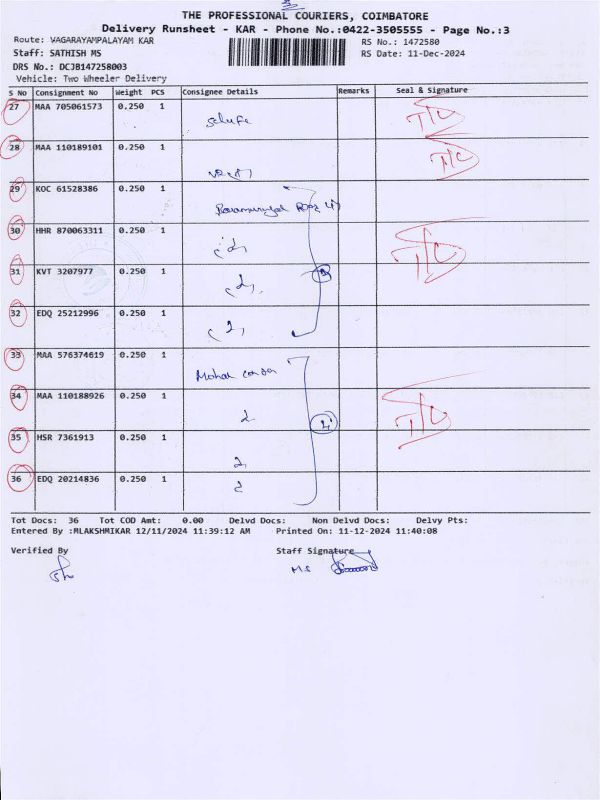 THE PROFESSIONAL COURIERS, COIMBATORE
Delivery Runsheet - KAR - Phone No.:0422-3505555 - Page No.:3
Route: VAGARAYAMPALAYAM KAR
RS No.: 1472580
Staff: SATHISH MS
RS Date: 11-Dec-2024
DRS No.: DCJB147258003
Vehicle: Two Wheeler Delivery
S No Consignment No Weight PCS Consignee Details Remarks Seal & Signature
27 MAA 705061573 0.250 1
28 MAA 110189101 0.250 1
29 KOC 61528386 0.250 1
30 HHR 870063311 0.250 1
31 KVT 3207977 0.250 1
32 EDQ 25212996 0.250 1
33 MAA 576374619 0.250 1
34 MAA 110188926 0.250 1
35 HSR 7361913 0.250 1
36 EDQ 20214836 0.250 1
Tot Docs: 36 Tot COD Amt: 0.00 Delvd Docs: Non Delvd Docs: Delvy Pts:
Entered By :MLAKSHMIKAR 12/11/2024 11:39:12 AM Printed On: 11-12-2024 11:40:08
Verified By Staff Signature
MS